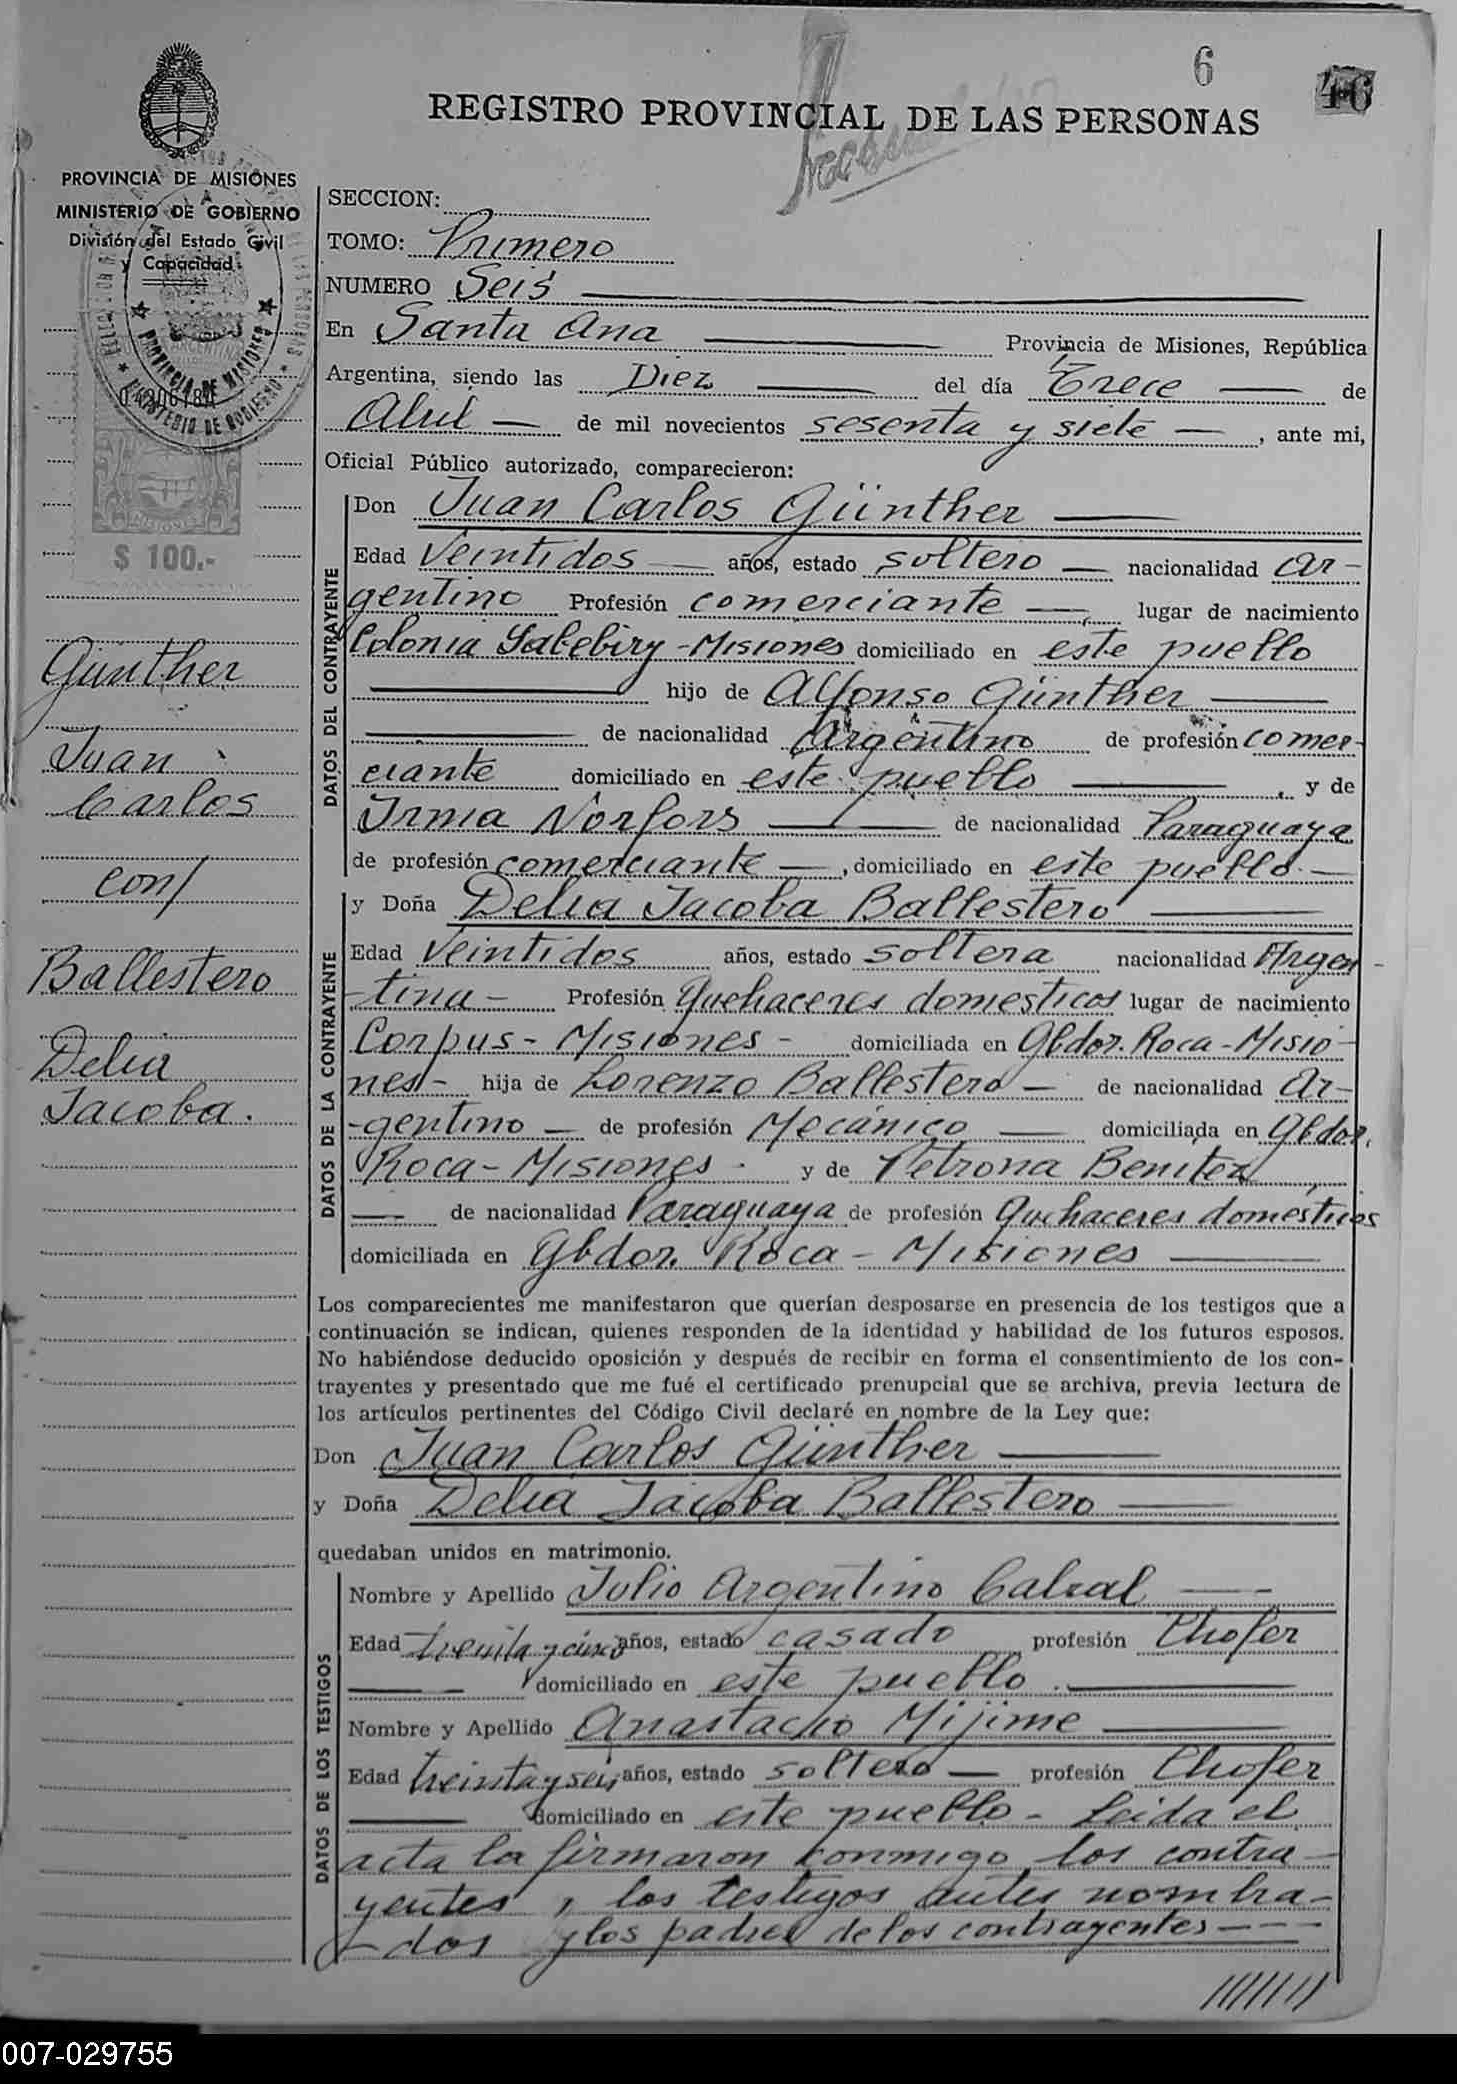 6
46
REGISTRO PROVINCIAL DE LAS PERSONAS
PROVINCIA DE MISIONES
MINISTERIO DE GOBIERNO
División del Estado Civil
y Capacidad
PROVINCIA DE MISIONES
MINISTERIO DE GOBIERNO
MISIONES
$ 100.-
Günther
Juan
Carlos
con/
Ballestero
Delia
Jacoba.
SECCION:
TOMO: Primero
NUMERO Seis
En Santa Ana Provincia de Misiones, República
Argentina, siendo las Diez del día Trece de
Abril de mil novecientos sesenta y siete, ante mi,
Oficial Público autorizado, comparecieron:
DATOS DEL CONTRAYENTE
Don Juan Carlos Günther
Edad Veintidos años, estado soltero nacionalidad Ar-
gentino Profesión comerciante, lugar de nacimiento
Colonia Yabebiry - Misiones domiciliado en este pueblo
hijo de Alfonso Günther
de nacionalidad Argentino de profesión comer-
ciante domiciliado en este pueblo, y de
Irma Norfors de nacionalidad Paraguaya
de profesión comerciante, domiciliado en este pueblo.
DATOS DE LA CONTRAYENTE
y Doña Delia Jacoba Ballestero
Edad Veintidos años, estado soltera nacionalidad Argen-
-tina- Profesión Quehaceres domesticos lugar de nacimiento
Corpus - Misiones - domiciliada en Gbdor. Roca - Misio-
nes- hija de Lorenzo Ballestero de nacionalidad Ar-
-gentino de profesión Mecánico domiciliada en Gbdor.
Roca - Misiones - y de Petrona Benitez
de nacionalidad Paraguaya de profesión Quehaceres domésticos
domiciliada en Gbdor. Roca - Misiones
Los comparecientes me manifestaron que querían desposarse en presencia de los testigos que a
continuación se indican, quienes responden de la identidad y habilidad de los futuros esposos.
No habiéndose deducido oposición y después de recibir en forma el consentimiento de los con-
trayentes y presentado que me fué el certificado prenupcial que se archiva, previa lectura de
los artículos pertinentes del Código Civil declaré en nombre de la Ley que:
Don Juan Carlos Günther
y Doña Delia Jacoba Ballestero
quedaban unidos en matrimonio.
DATOS DE LOS TESTIGOS
Nombre y Apellido Julio Argentino Cabral
Edad treinta y cinco años, estado casado profesión Chofer
domiciliado en este pueblo.
Nombre y Apellido Anastacio Mijime
Edad treinta y seis, años, estado soltero profesión Chofer
domiciliado en este pueblo - Leida el
acta la firmaron conmigo los contra-
yentes, los testigos antes nombra-
dos y los padres de los contrayentes
007-029755